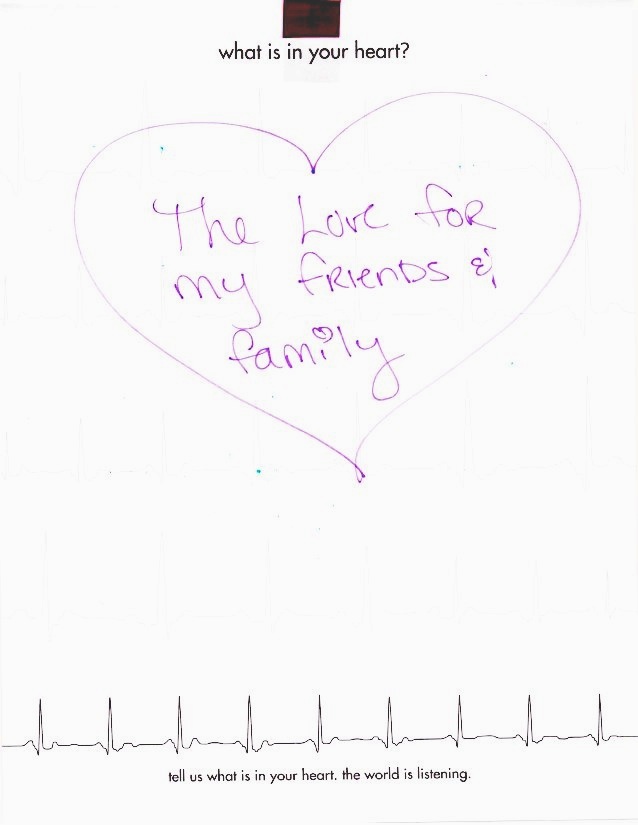 what is in your heart?
The Love for
my friends &
family
tell us what is in your heart. the world is listening.